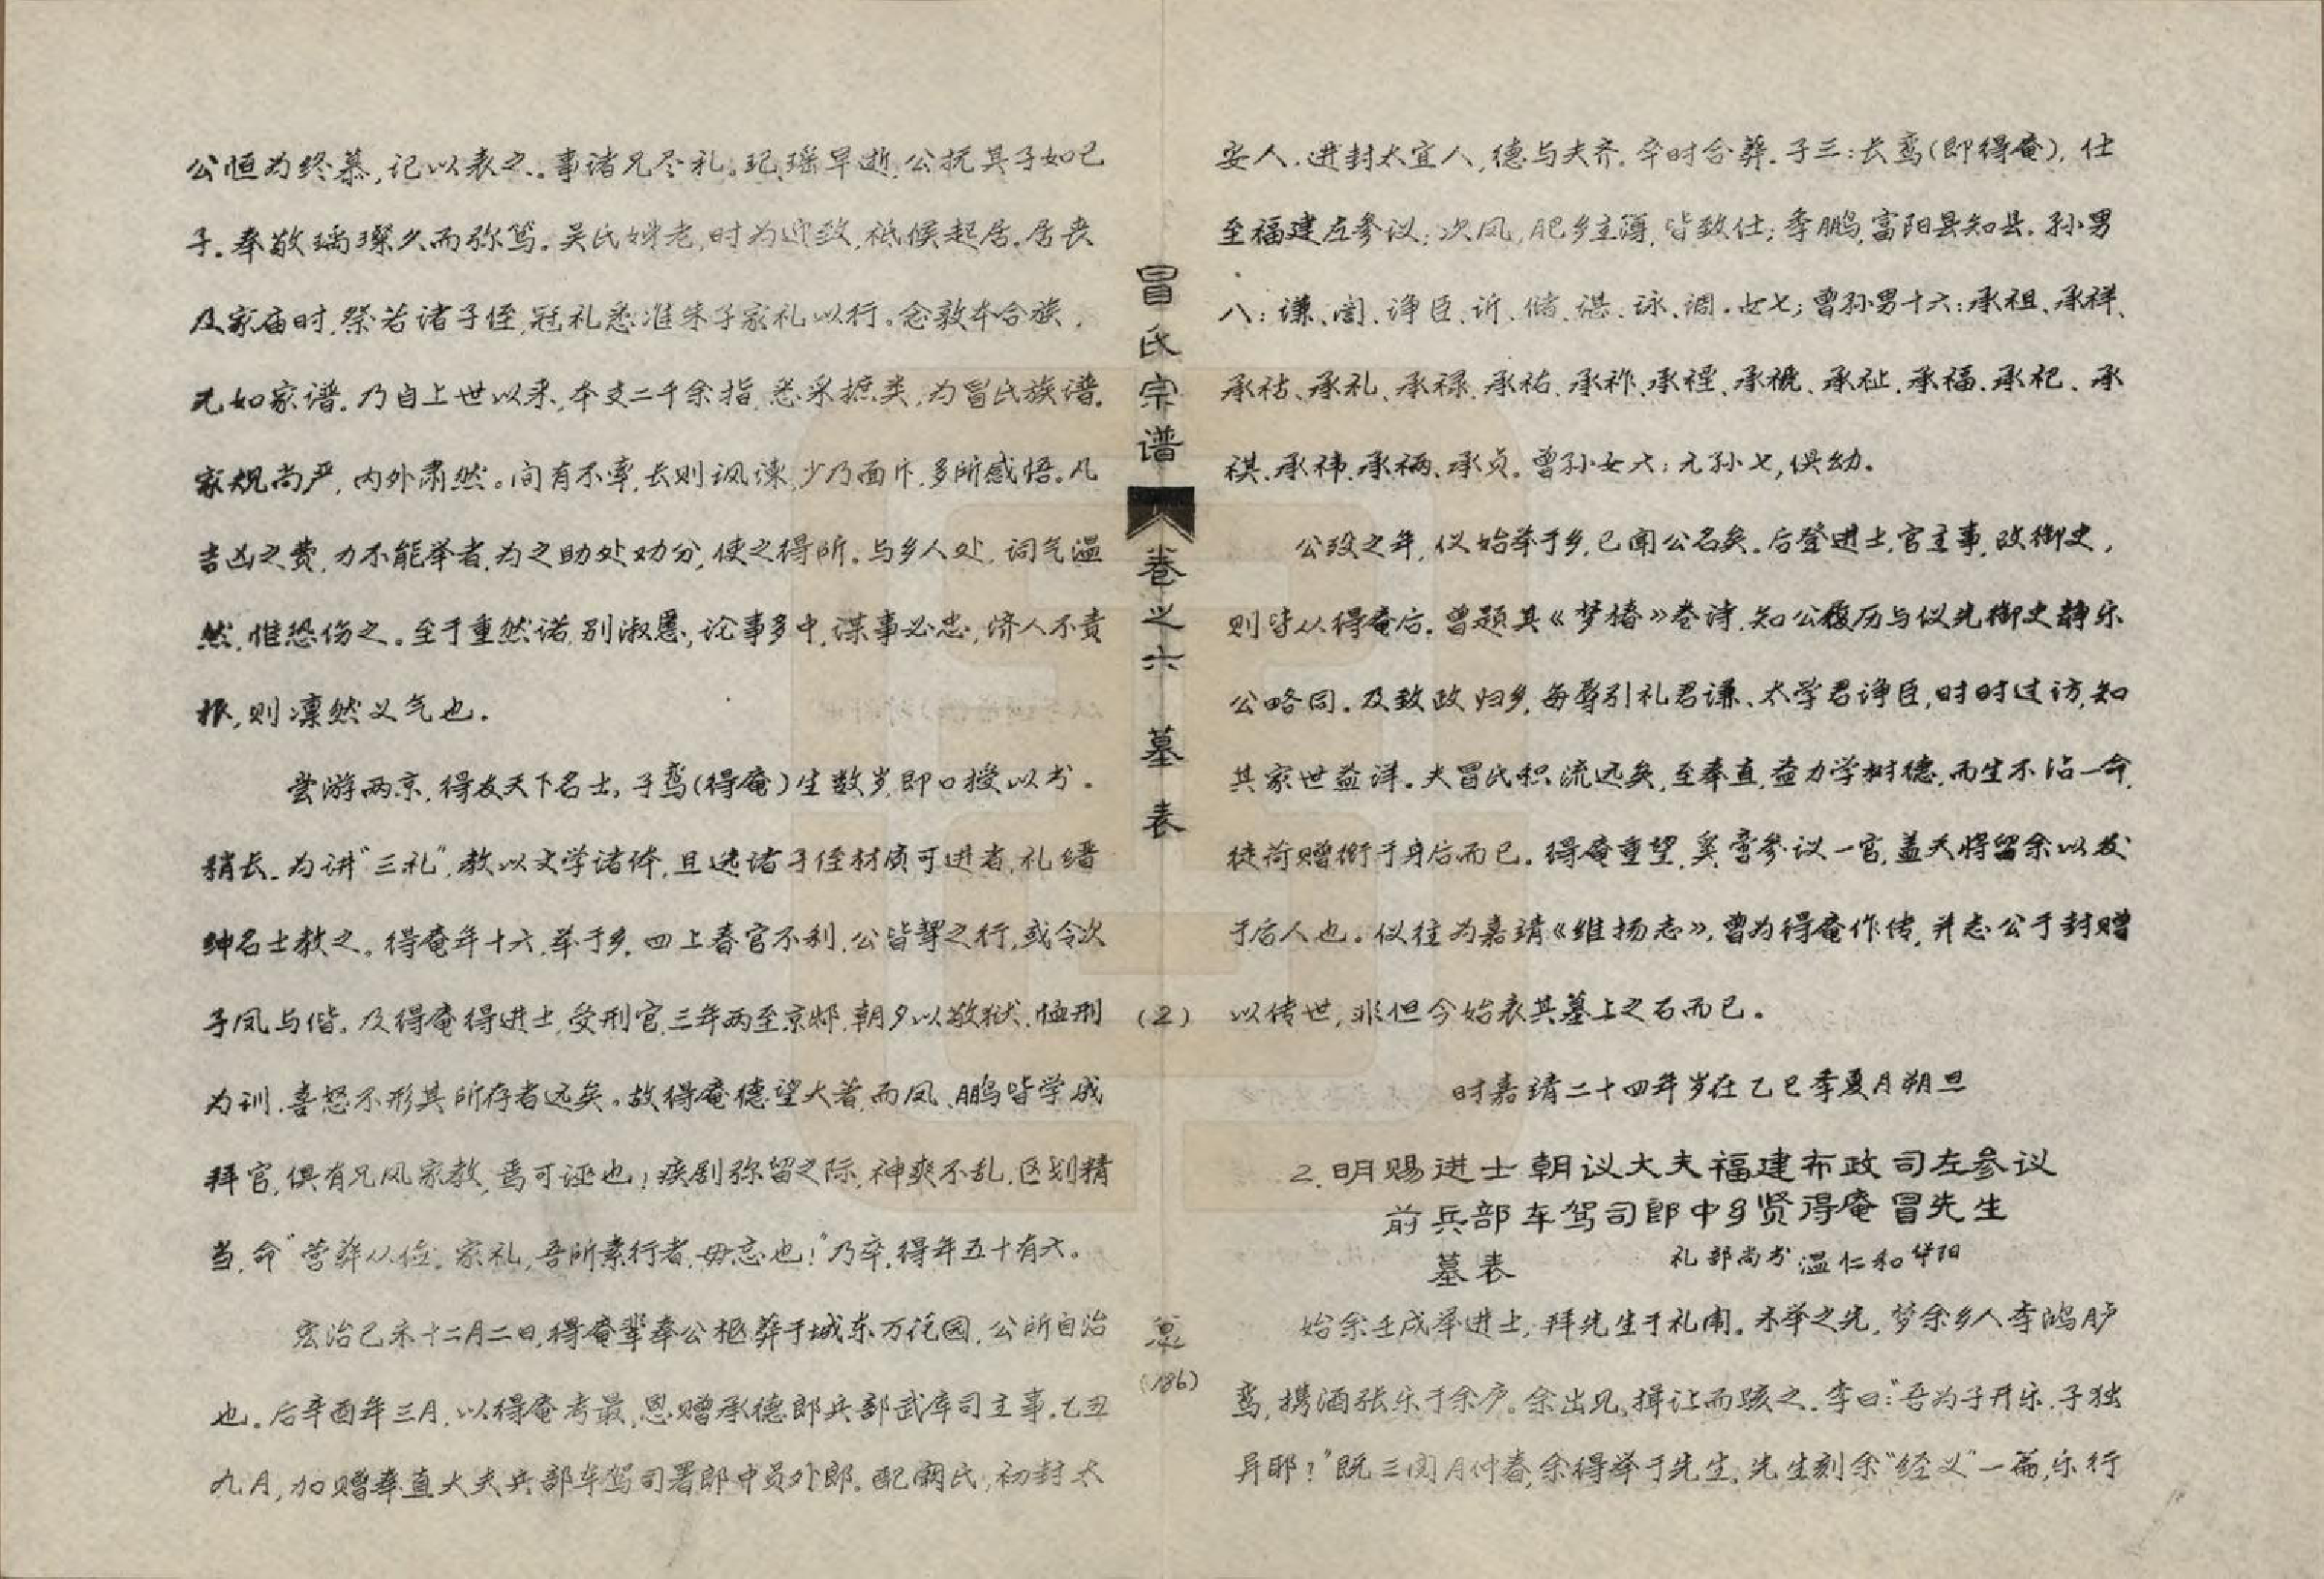 公恒为终慕,记以表之。事诸兄尽礼。玘、瑶早逝,公抚其子如己
子。奉敬瑀璨久而弥笃。吴氏姊老,时为迎致,祗候起居。居丧
及家庙时,祭若诸子侄,冠礼悉准朱子家礼以行。念敦本合族,
无如家谱。乃自上世以来,本支二千余指,悉采摭类,为冒氏族谱。
家规尚严,内外肃然。间有不率,长则讽谏,少乃面斥,多所感悟。凡
吉凶之费,力不能举者,为之助处劝分,使之得所。与乡人处,词气温
然,惟恐伤之。至于重然诺,别淑慝,论事多中,谋事必忠,济人不责
报,则凛然义气也。
尝游两京,得友天下名士,子鸾(得庵)生数岁,即口授以书。
稍长,为讲"三礼",教以文学诸体,且选诸子侄材质可进者,礼缙
绅名士教之。得庵年十六,举于乡,四上春官不利,公皆挈之行,或令次
子凤与偕。及得庵得进士,受刑官,三年两至京邸,朝夕以敬狱、恤刑
为训,喜怒不形其所存者远矣。故得庵德望大著,而凤、鹏皆学成
拜官,俱有兄风家教,焉可诬也!疾剧弥留之际,神爽不乱,区划精
当,命"营葬从俭,家礼,吾所素行者,毋忘也!"乃卒,得年五十有六。
宏治己未十二月二日,得庵辈奉公柩葬于城东万花园,公所自治
也。后辛酉年三月,以得庵考最,恩赠承德郎兵部武库司主事。乙丑
九月,加赠奉直大夫兵部车驾司署郎中员外郎。配阚氏,初封太
冒氏宗谱
卷之六 墓表
(2)
(186)
安人,进封太宜人,德与夫齐,卒时合葬。子三:长鸾(即得庵),仕
至福建左参议;次凤,肥乡主簿,皆致仕;季鹏,富阳县知县。孙男
八:谦、訚、诤臣、䜣、储、谌、咏、调。女七;曾孙男十六:承祖、承祥、
承祜、承礼、承禄、承祐、承祚、承禋、承祧、承祉、承福、承祀、承
祺、承祎、承祸、承贞。曾孙女六;元孙七,俱幼。
公殁之年,仪始举于乡,已闻公名矣。后登进士,官主事,改御史,
则皆从得庵后。曾题其《梦椿》卷诗,知公履历与仪先御史静乐
公略同。及致政归乡,每辱引礼君谦、太学君诤臣,时时过访,知
其家世益详。夫冒氏积流远矣,至奉直,益力学树德,而生不沾一命,
徒荷赠衔于身后而已。得庵重望,奚啻参议一官,盖天将留余以发
于后人也。仪往为嘉靖《维扬志》,曾为得庵作传,并志公于封赠
以传世,非但今始表其墓上之石而已。
时嘉靖二十四年岁在乙巳季夏月朔旦
2.明赐进士朝议大夫福建布政司左参议
前兵部车驾司郎中乡贤得庵冒先生
墓表 礼部尚书温仁和华阳
始余壬戌举进士,拜先生于礼闱。未举之先,梦余乡人李鸿胪
鸾,携酒张乐于余庐。余出见,揖让而骇之。李曰:"吾为子开乐,子独
异耶?"既三阅月仲春,余得举于先生,先生刻余"经义"一篇,乐行